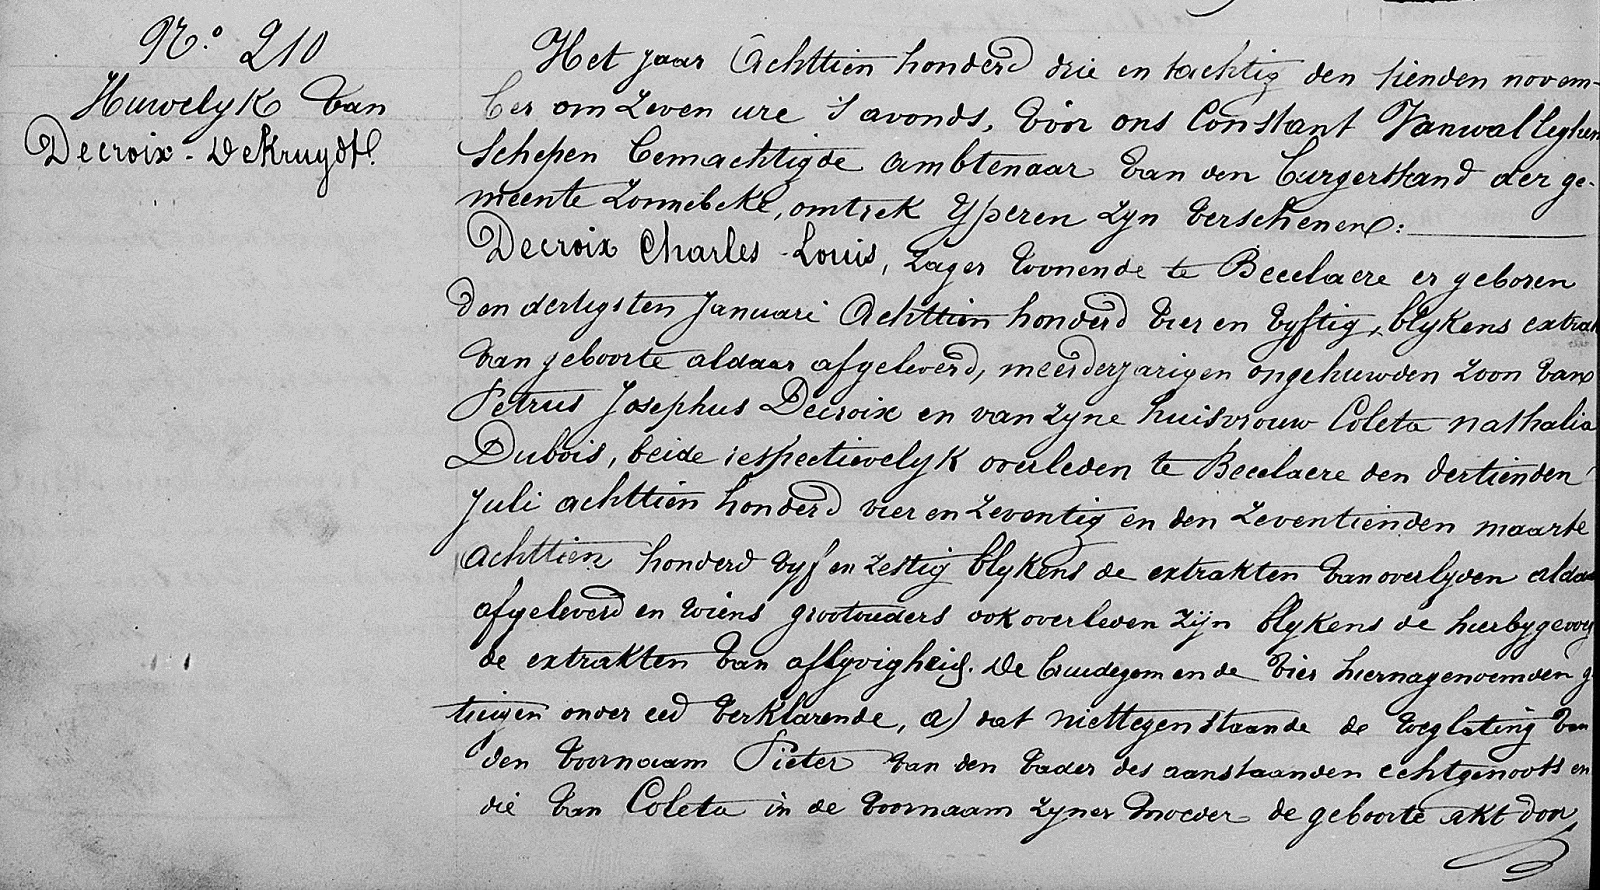 No. 210
Huwelyk van
Decroix - DeKruydt.
Het jaar Achttien honderd drie en tachtig den tienden novem-
ber om zeven ure 's avonds, vóór ons Constant Vanwalleghem
Schepen bemachtigde ambtenaar van den burgerstand der ge-
meente Zonnebeke, omtrek Yperen zyn verschenen:
Decroix Charles-Louis, zager wonende te Becelaere er geboren
den dertigsten Januari Achttien honderd vier en vyftig, blykens extrakt
van geboorte aldaar afgeleverd, meerderjarigen ongehuwden zoon van
Petrus Josephus Decroix en van zyne huisvrouw Coleta nathalia
Dubois, beide respectievelyk overleden te Becelaere den dertienden
Juli achttien honderd vier en zeventig en den zeventienden maarte
achttien honderd vyf en zestig blykens de extrakten van overlyden aldaar
afgeleverd en wiens grootouders ook overleden zyn blykens de hierbygevoeg
de extrakten van aflyvigheid. De bruidegom en de vier hiernagenoemden g
tuigen onder eed verklarende, a) dat niettegenstaande de weglating van
den voornaam Pieter van den vader des aanstaanden echtgenoots en
die van Coleta in de voornaam zyner moeder de geboorte akt door